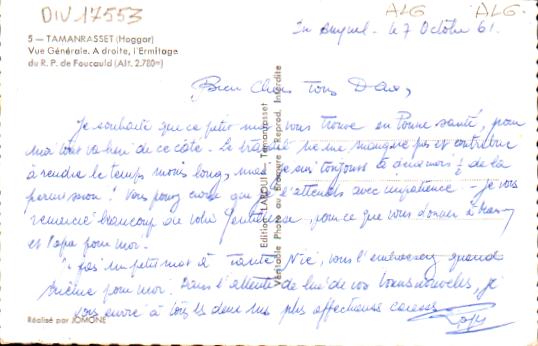 DIV 17553
ALG ALG.
5 — TAMANRASSET (Hoggar)
Vue Générale. A droite, l'Ermitage
du R. P. de Foucauld (Alt. 2.780m)
le 7 Octobre 61.
Bien Chers Tous Deux,
Je souhaite que ce petit mot vous trouve en bonne santé, pour
moi tout va bien de ce côté. Le travail ne me manque pas et contribue
à rendre le temps moins long, mais je suis toujours à de la
permission ! Vous pouvez croire que je l'attends avec impatience. - Je vous
remercie beaucoup de votre gentillesse, pour ce que vous donner à
et Papa pour moi.
un petit mot à vous l'embrasserez quand
même pour moi. Dans l'attente de lire de vos nouvelles, je
vous envoie à tous les deux mes plus affectueuses caresses
Editions LAROUII - Tamanrasset
Véritable Photo au Bromure - Reprod. Interdite
Réalisé par JOMONE